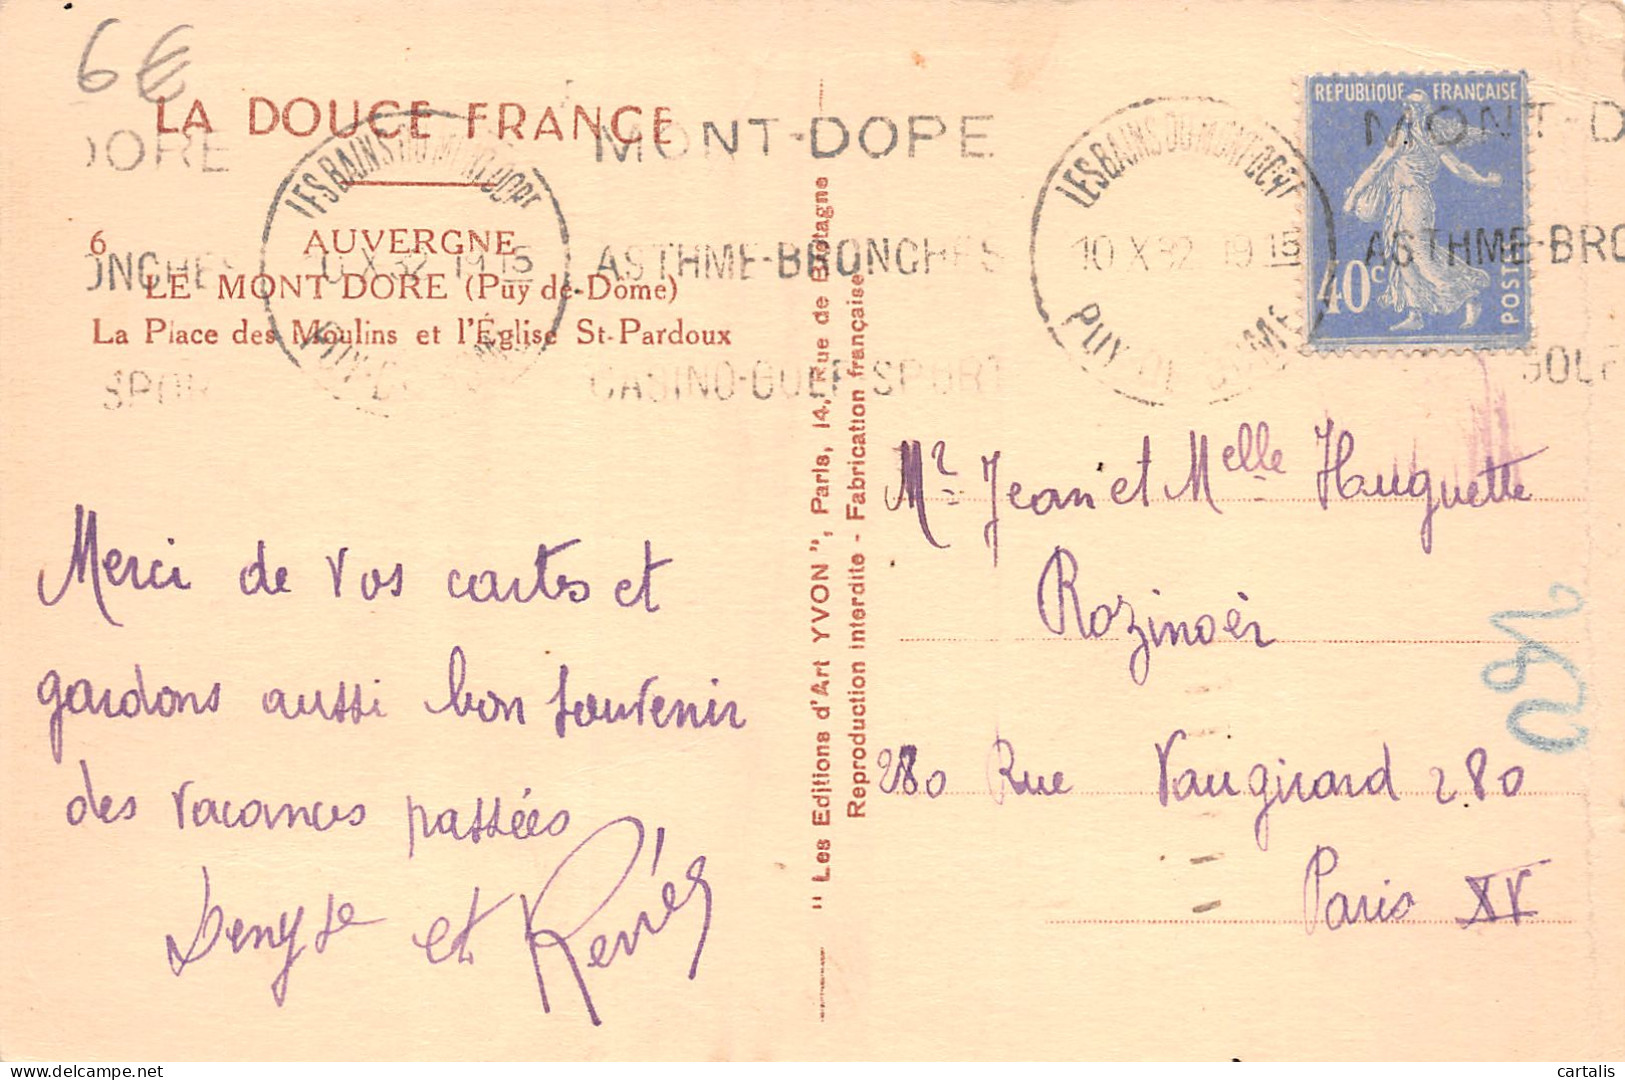 6€
LA DOUCE FRANCE
6 AUVERGNE
LE MONT DORE (Puy-de-Dôme)
La Place des Moulins et l'Église St-Pardoux
DORE
ONCHES
SPOR
LES BAINS DU MONT DORE
10 X 32 19 15
PUY-DE-DOME
MONT-DORE
ASTHME-BRONCHES
CASINO-GOLF-SPORT
LES BAINS DU MONT DORE
10 X 32 19 15
PUY-DE-DOME
MONT-D
ASTHME-BRO
GOLF
REPUBLIQUE FRANÇAISE
40c
POSTES
Merci de vos cartes et
gardons aussi bon souvenir
des vacances passées
Denyse et Renée
" Les Editions d'Art YVON ", Paris, 14, Rue de Bretagne
Reproduction interdite - Fabrication française
Mr Jean et Melle Huguette
Rozinoër
280 Rue Vaugirard 280
Paris XV
cartalis